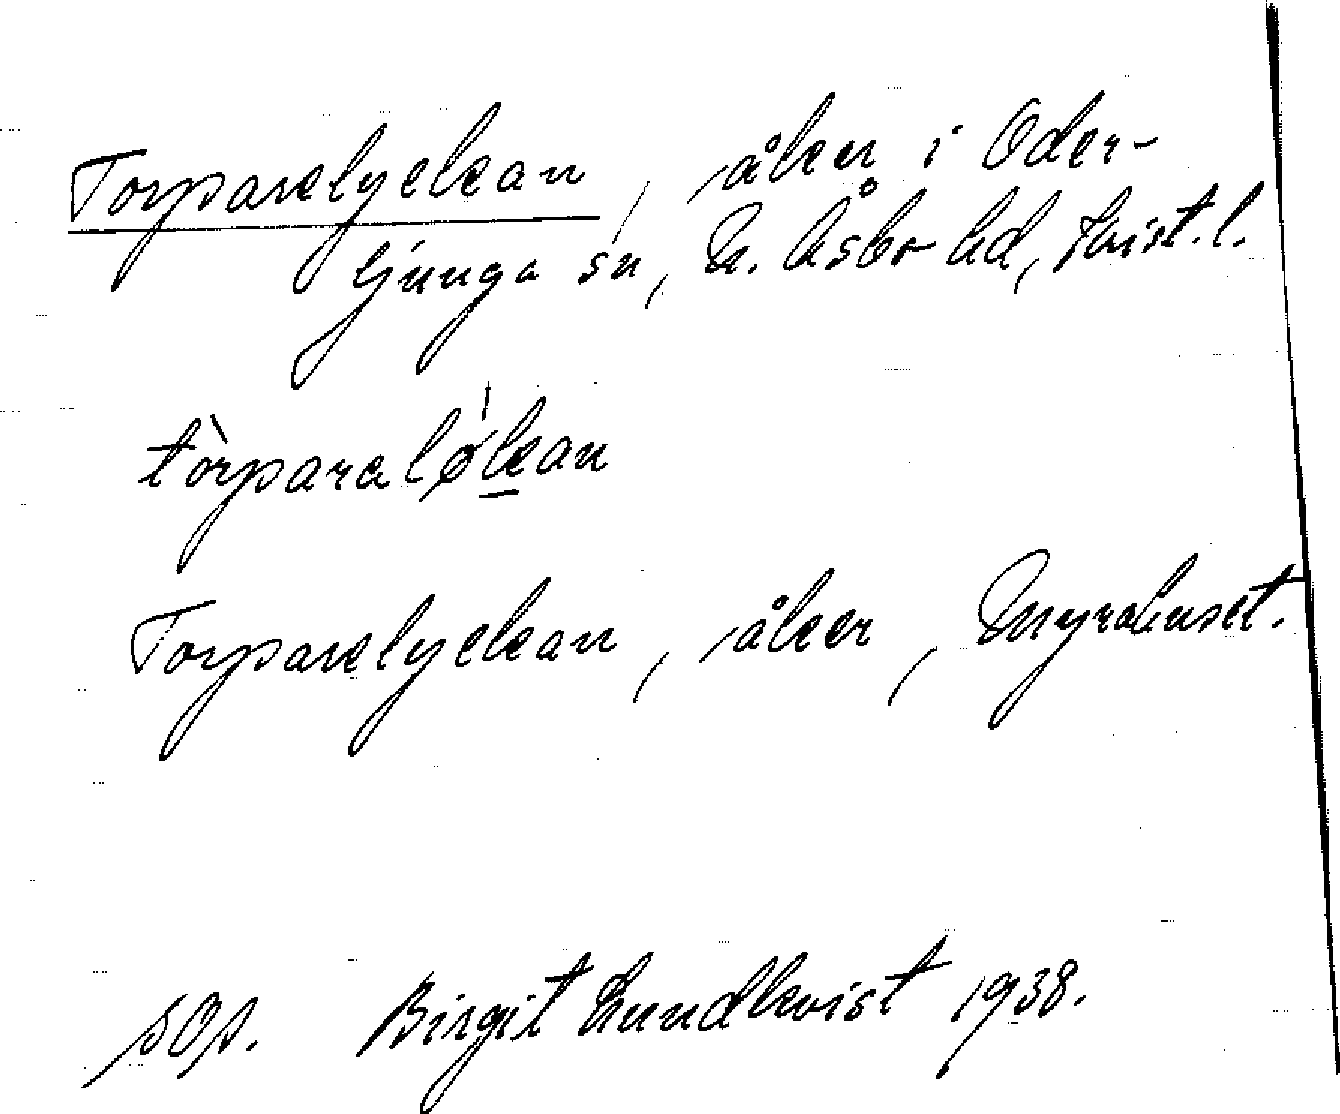 Torparelyckan, åker i Oder-
ljunga sn, N. Åsbo hd, Krist. l.
tòrparaløkan
Torparelyckan, åker, Myrahuset.
SOA. Birgit Lundkvist 1938.